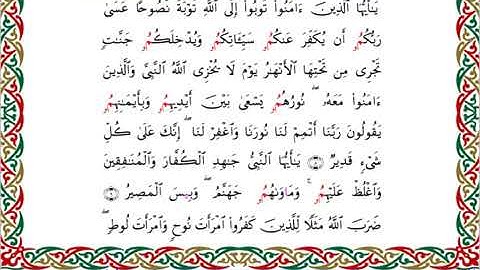 يَٰأَيُّهَا ٱلَّذِينَ ءَامَنُوا۟ تُوبُوا۟ إِلَى ٱللَّهِ تَوْبَةً نَّصُوحًا عَسَىٰ
رَبُّكُمُۥ أَن يُكَفِّرَ عَنكُمُۥ سَيِّـَٔاتِكُمُۥ وَيُدْخِلَكُمُۥ جَنَّٰتٍ
تَجْرِى مِن تَحْتِهَا ٱلْأَنْهَٰرُ يَوْمَ لَا يُخْزِى ٱللَّهُ ٱلنَّبِىَّ وَٱلَّذِينَ
ءَامَنُوا۟ مَعَهُۥ ۖ نُورُهُمُۥ يَسْعَىٰ بَيْنَ أَيْدِيهِمُۥ وَبِأَيْمَٰنِهِمُۥ
يَقُولُونَ رَبَّنَا أَتْمِمْ لَنَا نُورَنَا وَٱغْفِرْ لَنَا ۖ إِنَّكَ عَلَىٰ كُلِّ
شَىْءٍ قَدِيرٌ ٨ يَٰأَيُّهَا ٱلنَّبِىُّ جَٰهِدِ ٱلْكُفَّارَ وَٱلْمُنَٰفِقِينَ
وَٱغْلُظْ عَلَيْهِمُۥ ۚ وَمَاوَىٰهُمُۥ جَهَنَّمُ ۖ وَبِيسَ ٱلْمَصِيرُ ٩
ضَرَبَ ٱللَّهُ مَثَلًا لِّلَّذِينَ كَفَرُوا۟ ٱمْرَأَتَ نُوحٍ وَٱمْرَأَتَ لُوطٍ ۖ